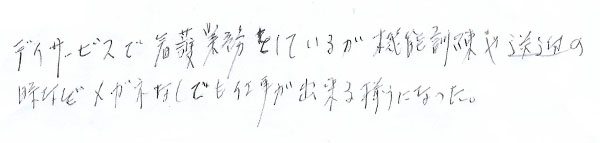 デイサービスで看護業務をしているが機能訓練や送迎の
時などメガネなしでも仕事が出来る様になった。